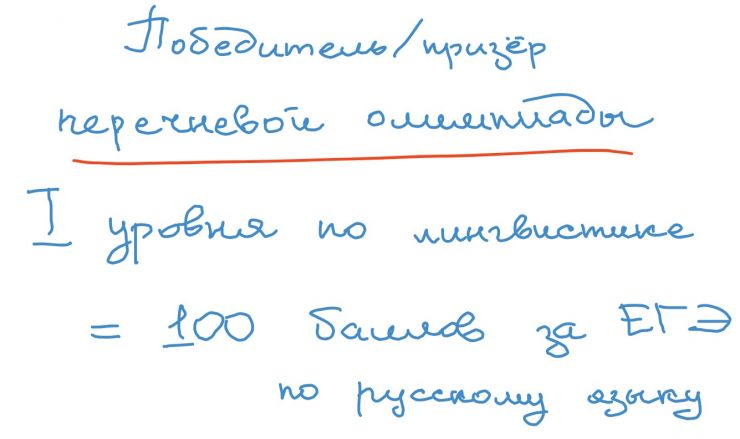 Победитель/призёр
перечневой олимпиады
I уровня по лингвистике
= 100 баллов за ЕГЭ
по русскому языку